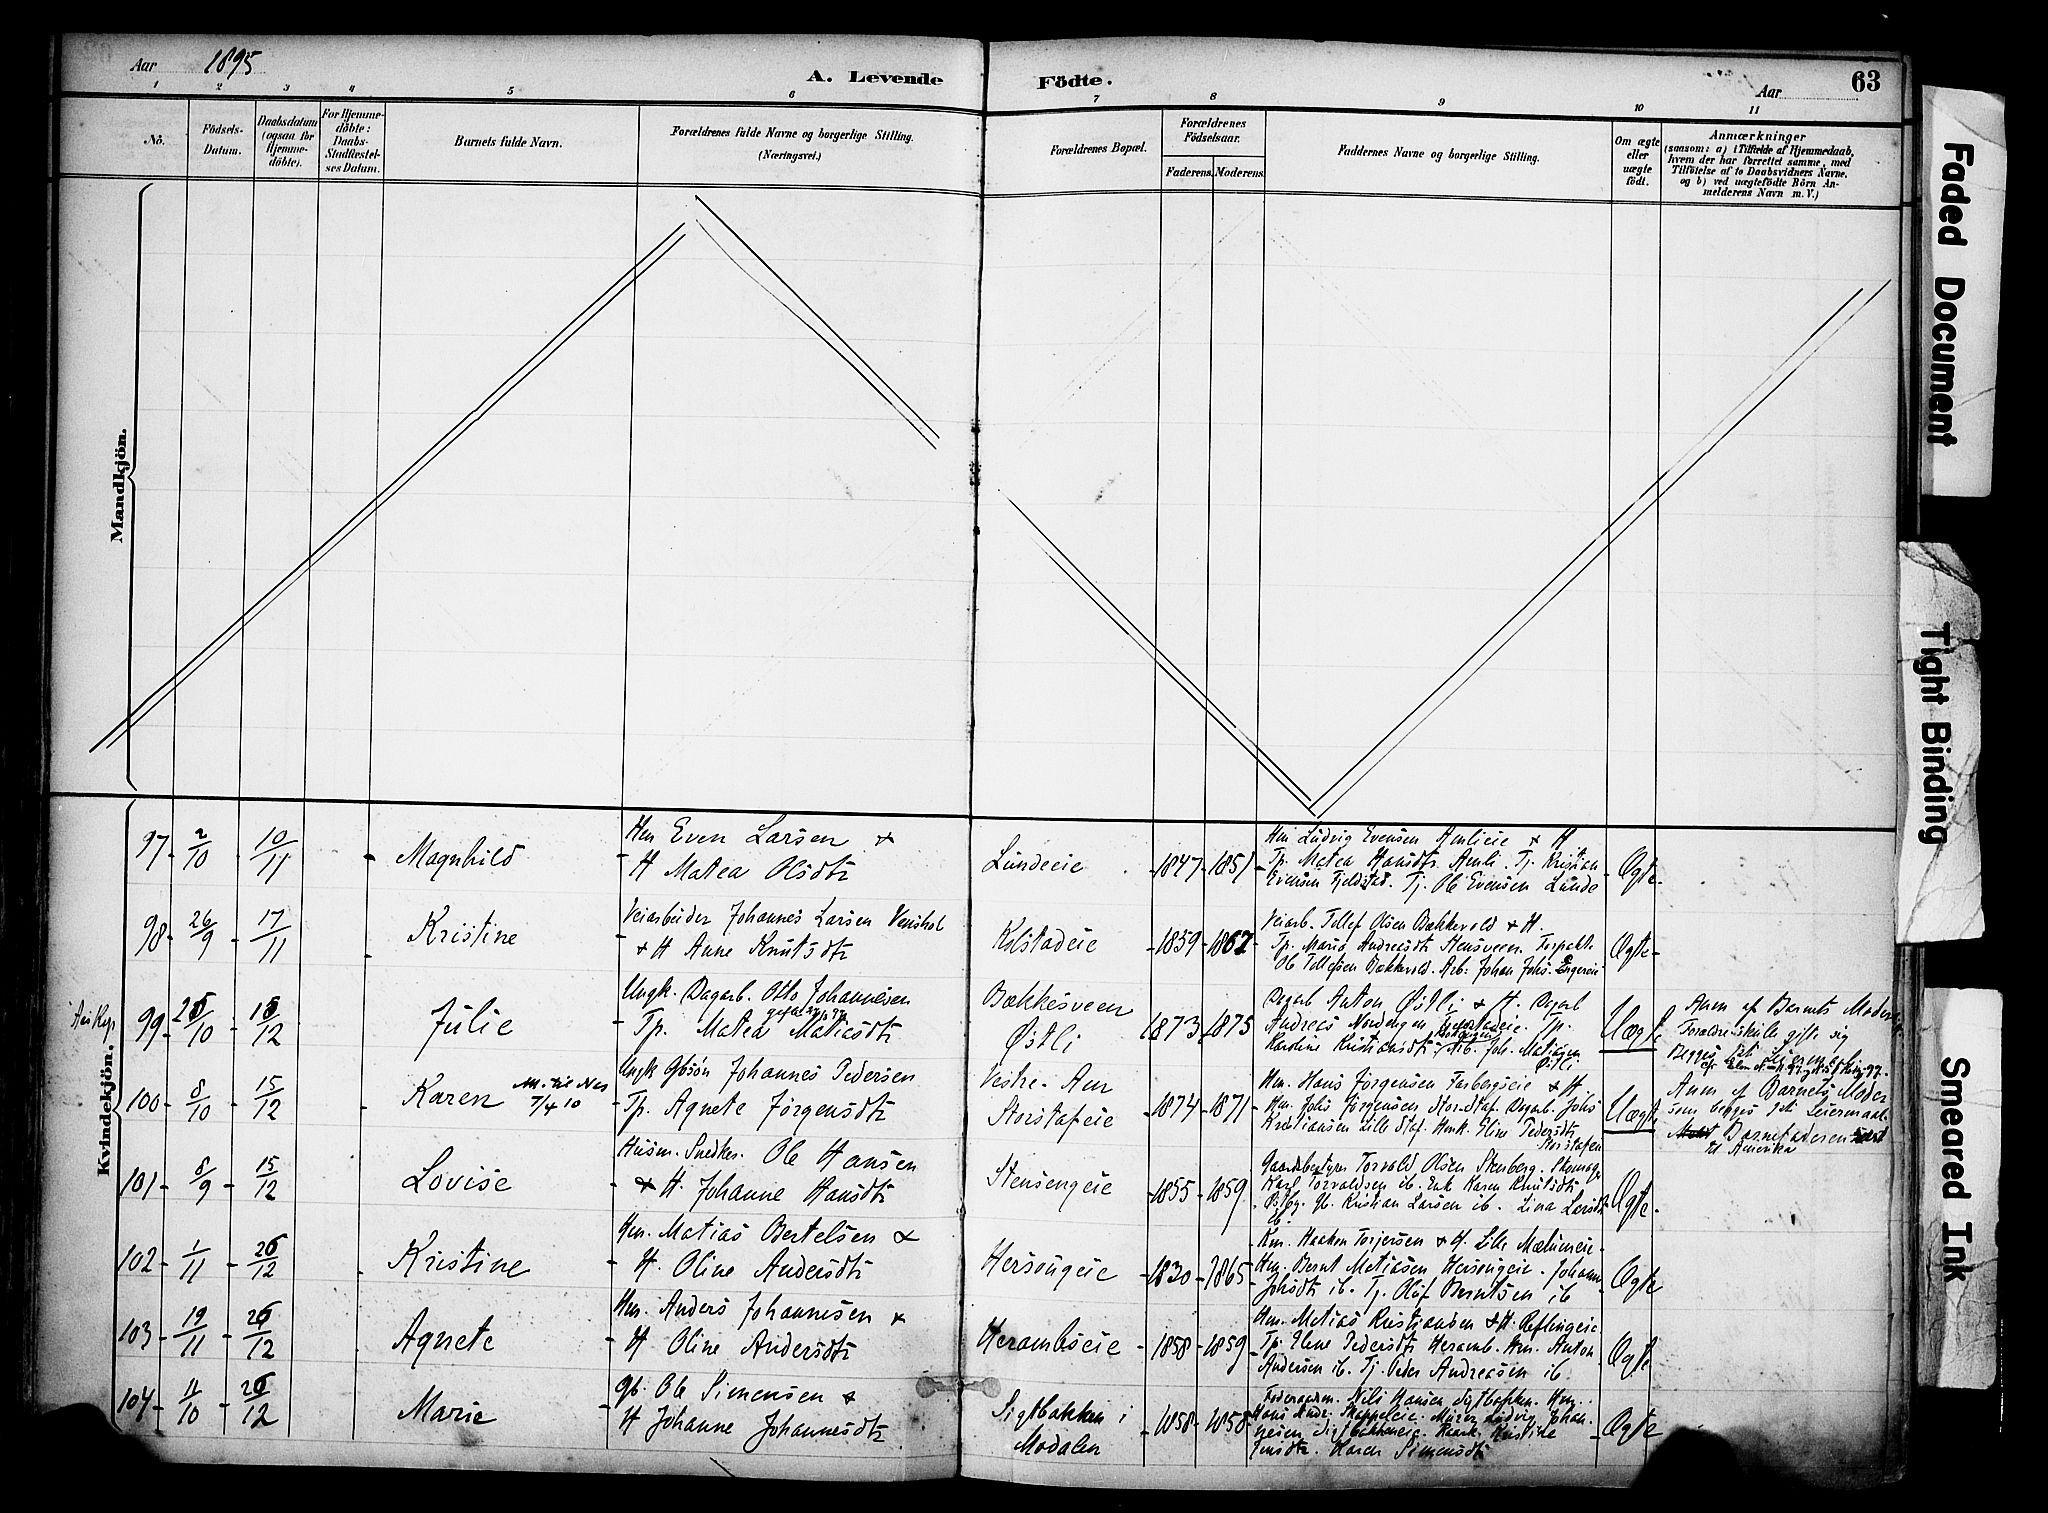 Aar 1895
A. Levende Födte.
Aar
63
1 2 3 4 5 6 7 8 9 10 11
No.
Födsels-
Datum.
Daabsdatum
(ogsaa for
Hjemme-
döbte).
For Hjemme-
döbte:
Daabs-
Stadfæstel-
ses Datum.
Barnets fulde Navn.
Forældrenes fulde Navne og borgerlige Stilling.
(Næringsvei.)
Forældrenes Bopæl.
Forældrenes
Födselsaar.
Faderens. Moderens.
Faddernes Navne og borgerlige Stilling.
Om ægte
eller
uægte
födt.
Anmærkninger
(saasom: a) i Tilfælde af Hjemmedaab,
hvem der har forrettet samme, med
Tilföielse af to Daabsvidners Navne.
og b) ved uægtefödte Börn An-
melderens Navn m. V.)
Mandkjön.
Kvindekjön.
97 2/10 10/11 Magnhild
Hm Even Larsen &
H Matea Olsdtr
Lundeeie 1847 1851
Hm Ludvig Evensen Amlieie & H
Tp. Matea Hansdtr Amli. Tj. Kristian
Evensen Fjeldstad. Tj. Ole Evensen Lunde
Ægte
98 26/9 17/11 Kristine
Veiarbeider Johannes Larsen
& H Anne Knutsdtr
Kolstadeie 1859 1862
Veiarb. Tollef Olsen Bækkevold & H.
Tp. Maria Andreasdtr Hensveen.
Ole Tollefsen Bækkevold. Arb: Johan Johs.
Ægte
99 25/10 15/12 Julie
Ungk. Dagarb. Otto Johannesen
Tp. Matea Matiasdtr
Bækkesveen
Østli
1873 1875
Dagarb Anton Østli & H. Dagarb
Andreas Nordengen Tp.
Karoline Kristiansdtr Arb. Joh. Matiasen
Østli
Uægte
Anm af Barnets Moder
Forældre skulle gifte sig
Begges 1ste Leiermaal
100 8/10 15/12 Karen
7/4 10
Ungk Gbsøn Johannes Pedersen
Tp. Agnete Jörgensdtr
Vestre-Aen
Storstafeie
1874 1871
Hm. Hans Jörgensen Farbergseie & H
Hm. Johs Jörgensen Storstaf. Dagarb. Johs
Kristiansen Lille Staf. Eline Pedersdtr
Storstafen
Uægte
Anm af Barnets Moder
som begges 1ste Leiermaal
Barnefaderen
til Amerika
101 8/9 15/12 Lovise
Husm. Snedker. Ole Hansen
& H. Johanne Hansdtr
Stensengeie 1855 1859
Gaardbestyrer Torvald Olsen Stenberg. Skomager
Karl Torvaldsen ib. Enk Karen Knutsdtr
Østby. Kristian Larsen ib. Lina Larsdtr
ib.
Ægte
102 1/11 26/12 Kristine
Hm. Matias Bertelsen &
H. Oline Andersdtr
Hersougeie 1830 1865
Km. Haaken Torjersen & H. Lille Mælumeie
Hm. Bernt Matiasen Hersougeie. Johanne
Johsdtr ib. Tj. Oluf Berntsen ib
Ægte
103 19/11 26/12 Agnete
Hm. Anders Johannesen &
H Oline Andersdtr
Herambseie 1858 1859
Hm. Matias Kristiansen & H Reflingeie
Tp. Eline Pedersdtr Heramb. Hm. Anton
Andersen ib. Tj. Peder Andreasen ib.
Ægte
104 11/10 26/12 Marie
Gb. Ole Simensen &
H Johanne Johannesdtr
Sigtbakken i
Modalen
1858 1858
Föderaadm. Nils Hansen Sigtbakken. Hm.
Hans Andr. Skappeleie. Murer Ludvig Johan-
nesen Sigtbakkeneie.
Jensdtr. Karen Simensdtr
Ægte
Faded Document
Tight Binding
Smeared Ink